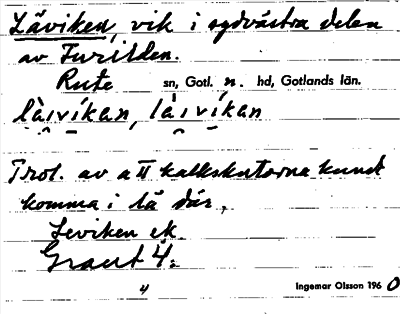 Läviken, vik i sydvästra delen
av Furilden.
Rute sn, Gotl. n. hd, Gotlands län.
la̍ıvíkan, la̍ıvíkan
Trol. av att kalkskutorna kunnat
komma i lä där.
Leviken ek.
4:
4 Ingemar Olsson 1960